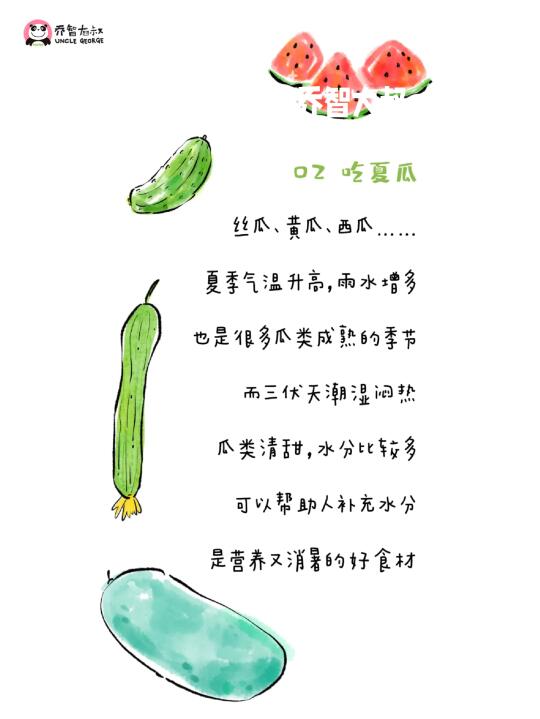 乔智大叔
UNCLE GEORGE
乔智大叔
02 吃夏瓜
丝瓜、黄瓜、西瓜……
夏季气温升高,雨水增多
也是很多瓜类成熟的季节
而三伏天潮湿闷热
瓜类清甜,水分比较多
可以帮助人补充水分
是营养又消暑的好食材